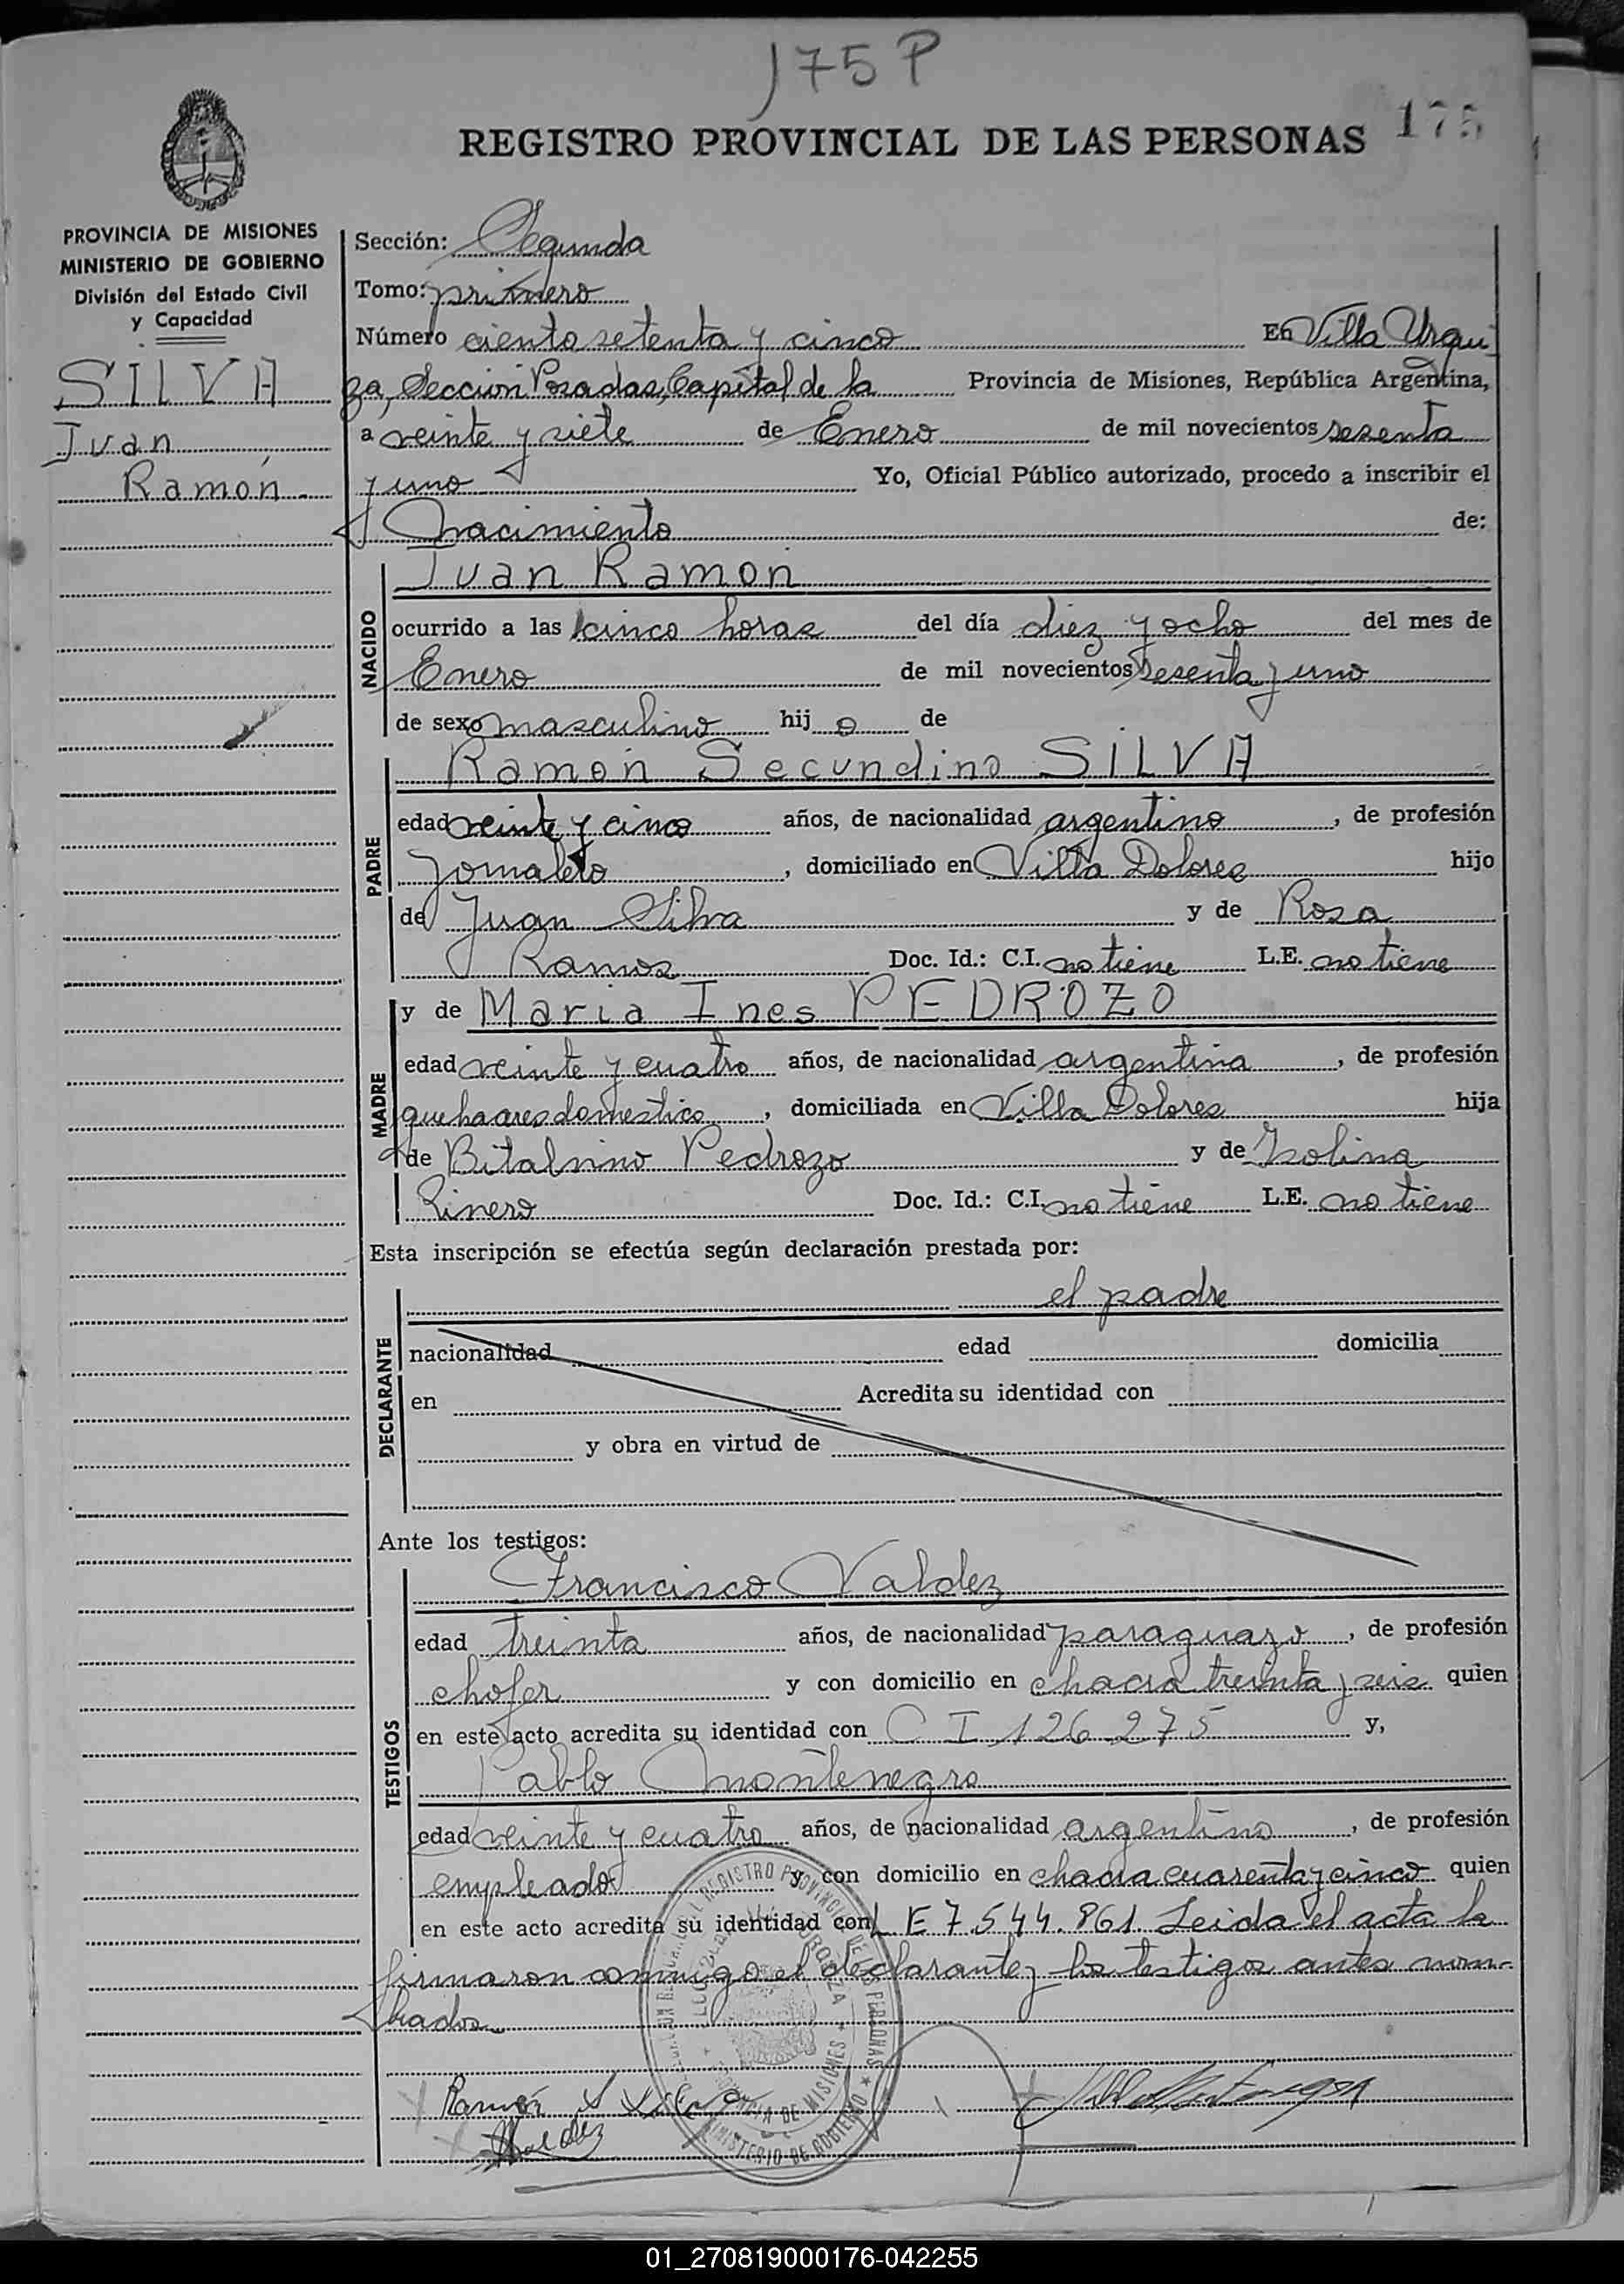 175 P
175
REGISTRO PROVINCIAL DE LAS PERSONAS
PROVINCIA DE MISIONES
MINISTERIO DE GOBIERNO
División del Estado Civil
y Capacidad
SILVA
Juan
Ramón
Sección: Segunda
Tomo: primero
Número ciento setenta y cinco En Villa Urqui
za, Seccion Posadas, Capital de la Provincia de Misiones, República Argentina,
a veinte y siete de Enero de mil novecientos sesenta
y uno Yo, Oficial Público autorizado, procedo a inscribir el
Nacimiento de:
NACIDO
Juan Ramon
ocurrido a las cinco horas del día diez y ocho del mes de
Enero de mil novecientos sesenta y uno
de sexo masculino hijo de
PADRE
Ramon Secundino SILVA
edad veinte y cinco años, de nacionalidad argentino, de profesión
Jornalero, domiciliado en Villa Dolores hijo
de Juan Silva y de Rosa
Ramos Doc. Id.: C.I. no tiene L.E. no tiene
MADRE
y de Maria Ines PEDROZO
edad veinte y cuatro años, de nacionalidad argentina, de profesión
domestico, domiciliada en Villa Dolores hija
de Pedrozo y de Isolina
Doc. Id.: C.I. no tiene L.E. no tiene
Esta inscripción se efectúa según declaración prestada por:
DECLARANTE
el padre
nacionalidad edad domicilia
en Acredita su identidad con
y obra en virtud de
Ante los testigos:
TESTIGOS
Francisco Valdez
edad treinta años, de nacionalidad paraguayo, de profesión
chofer y con domicilio en chacra treinta y seis quien
en este acto acredita su identidad con C I 126.275 y,
Pablo Montenegro
edad veinte y cuatro años, de nacionalidad argentino, de profesión
empleado y con domicilio en chacra cuarenta y cinco quien
en este acto acredita su identidad con L E 7.544.861 Leida el acta la
firmaron conmigo el declarante y los testigos antes nom-
brados
REGISTRO PROVINCIAL DE LAS PERSONAS
PROVINCIA DE MISIONES
MINISTERIO DE GOBIERNO
Ramón S Silva
Valdez
01_270819000176-042255